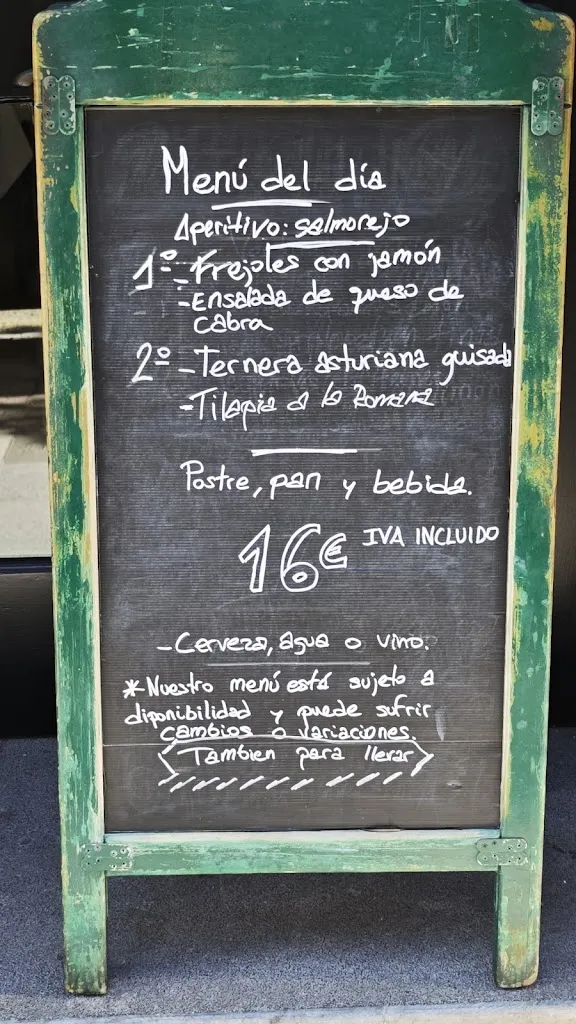 Menú del día
Aperitivo: salmorejo
1º - Frejoles con jamón
- Ensalada de queso de
cabra
2º - Ternera asturiana guisada
- Tilapia a la Romana
Postre, pan y bebida.
16€ IVA INCLUIDO
- Cerveza, agua o vino.
* Nuestro menú está sujeto a
diponibilidad y puede sufrir
cambios o variaciones.
Tambien para llevar